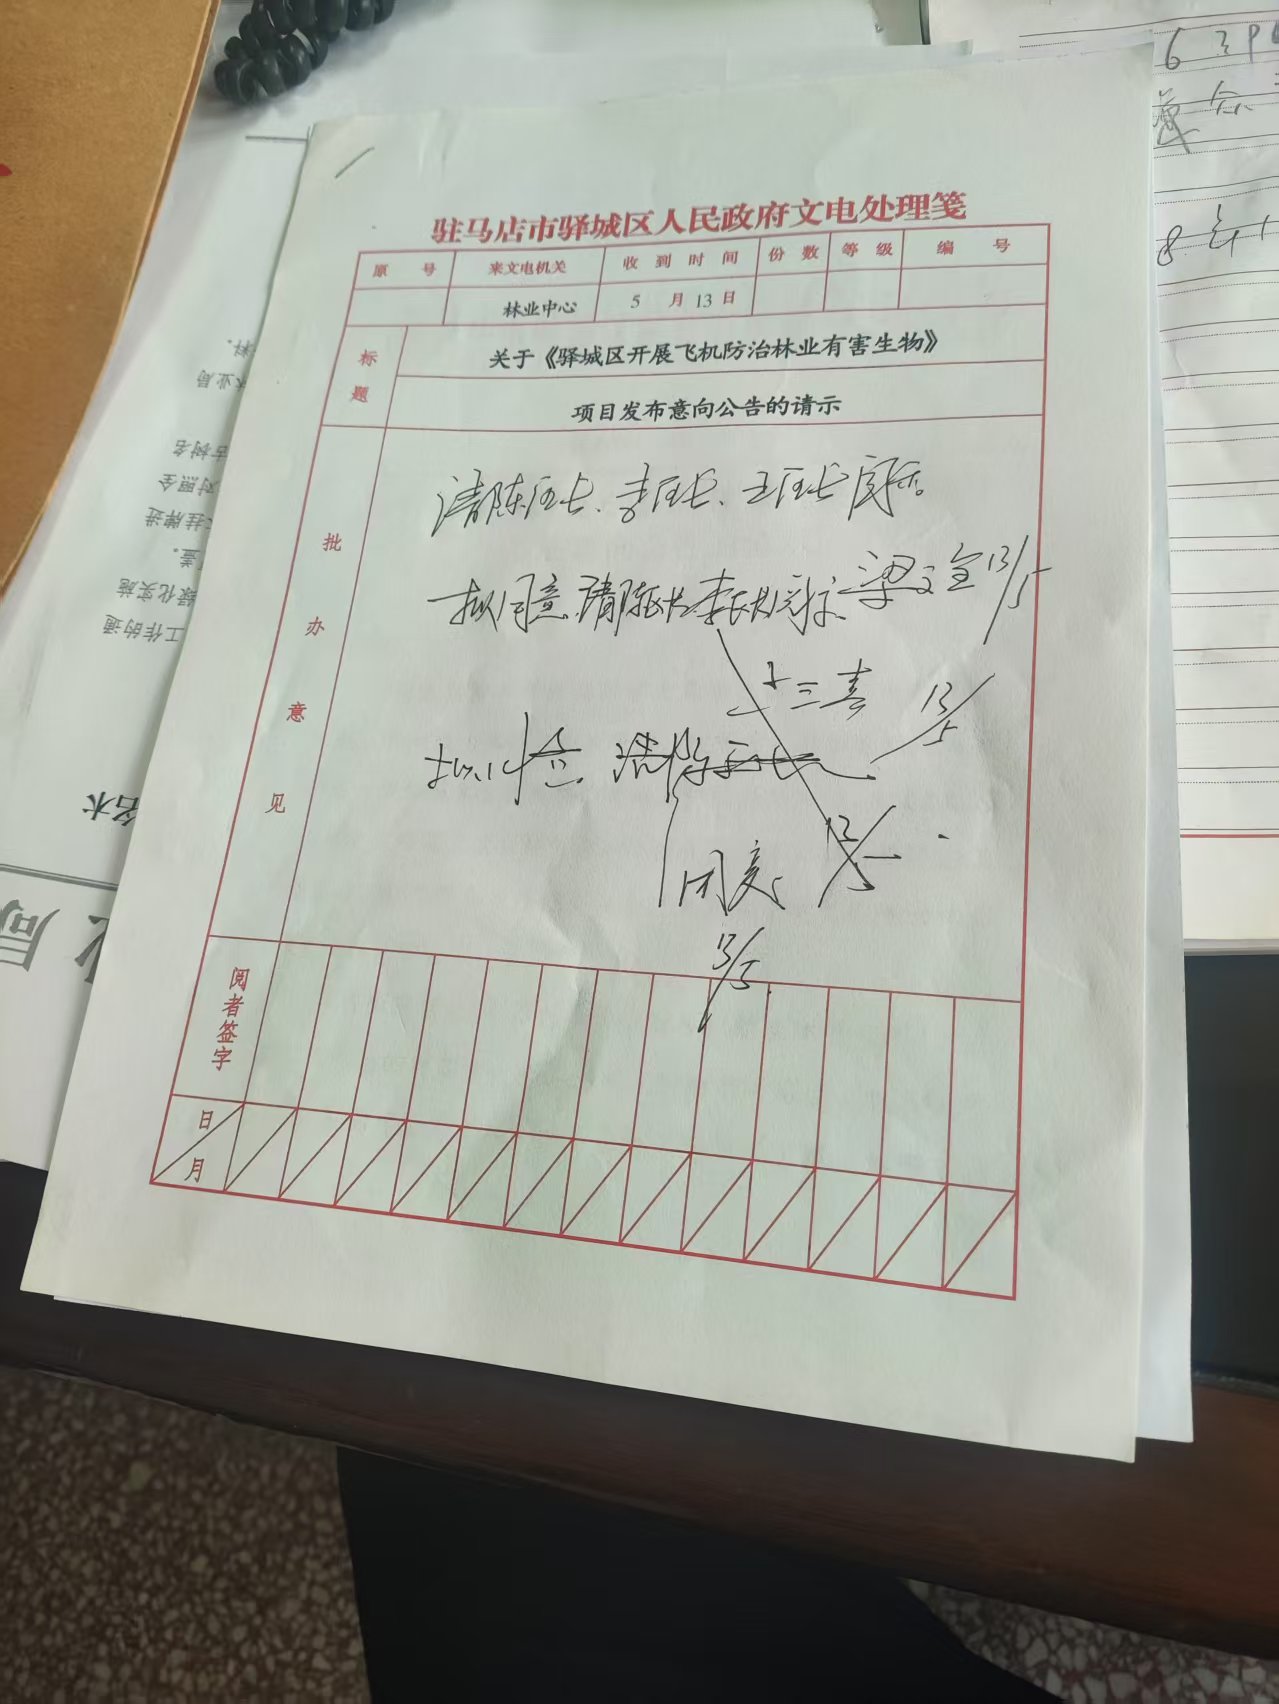 驻马店市驿城区人民政府文电处理笺
原号 来文电机关 收到时间 份数 等级 编号
林业中心 5月13日
标题
关于《驿城区开展飞机防治林业有害生物》
项目发布意向公告的请示
批办意见
请陈区长、李区长、王区长阅示。
梁文全 13/5
拟同意 请陈区长 李区长阅示
13/5
拟同意 请陈区长
13/5
同意
13/5
阅者签字
日
月
业局
古树名
对照全
挂牌进
绿化实施
工作的通
名木